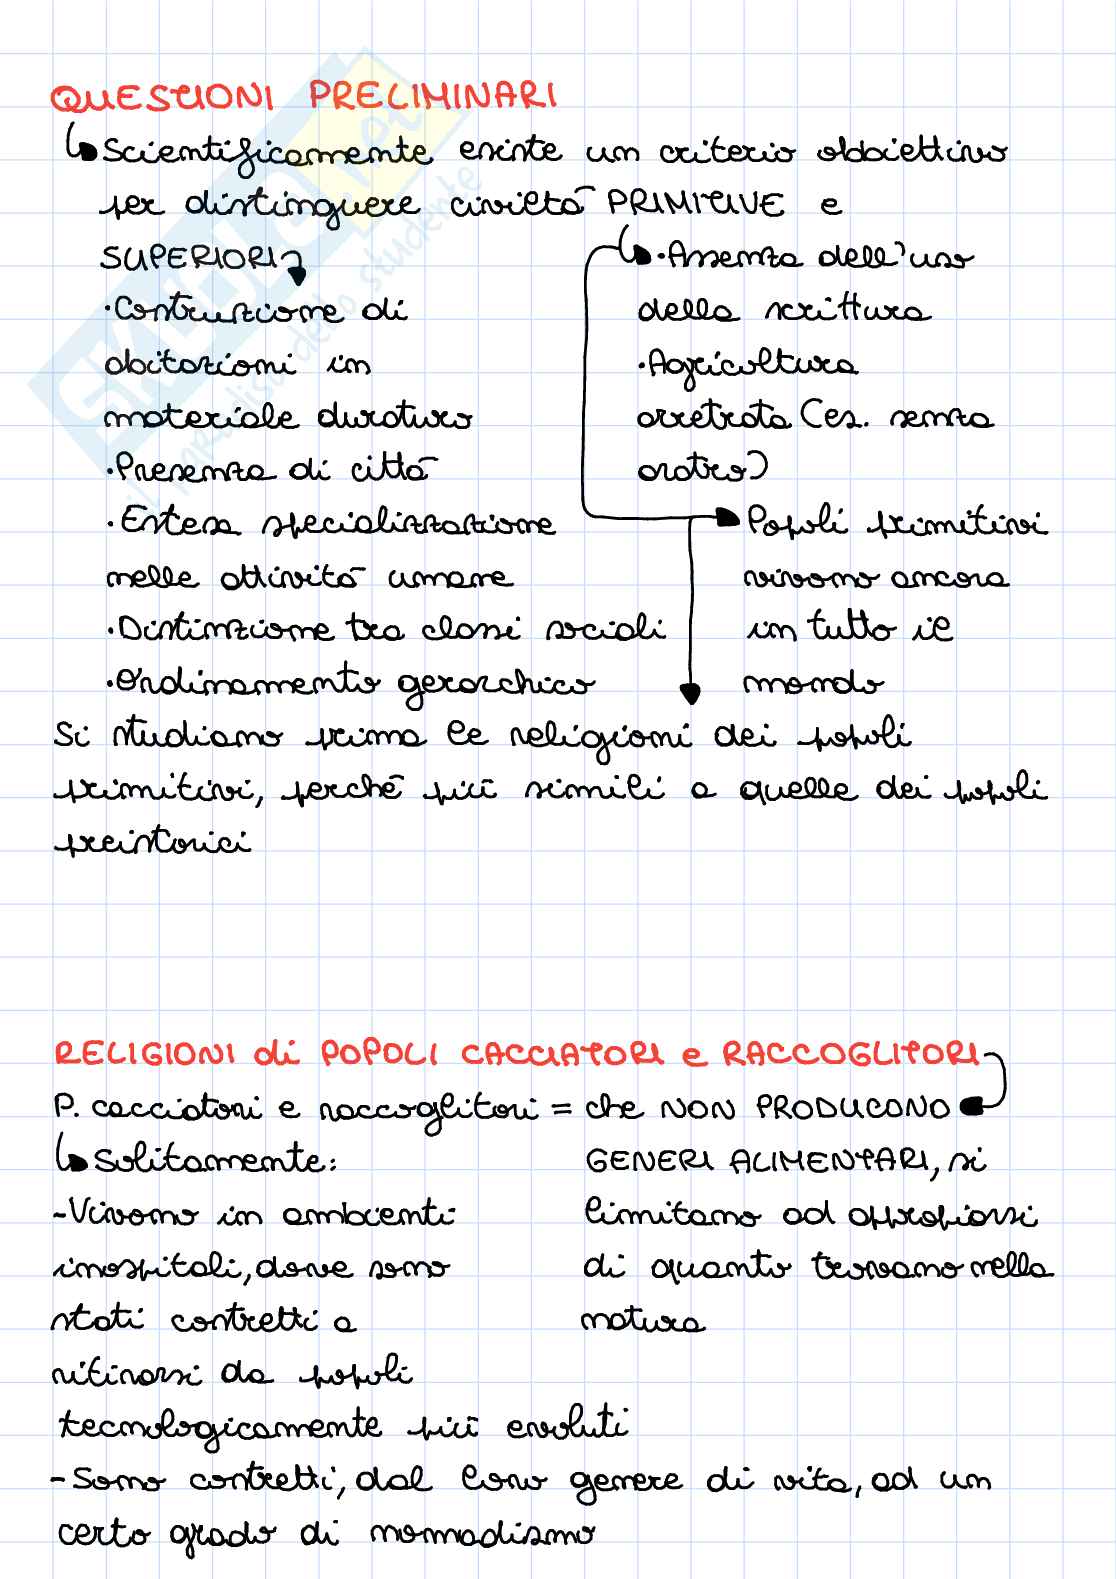 QUESTIONI PRELIMINARI
Scientificamente esiste un criterio obbiettivo
per distinguere civiltà PRIMITIVE e
SUPERIORI
·Costruzione di
abitazioni in
materiale duraturo
·Presenza di città
·Estesa specializzazione
nelle attività umane
·Distinzione tra classi sociali
·Ordinamento gerarchico
·Assenza dell'uso
della scrittura
·Agricoltura
arretrata (es. senza
aratro)
Popoli primitivi
vivono ancora
in tutto il
mondo
Si studiano prima le religioni dei popoli
primitivi, perché più simili a quelle dei popoli
preistorici
RELIGIONI di POPOLI CACCIATORI e RACCOGLITORI
P. cacciatori e raccoglitori = che NON PRODUCONO
GENERI ALIMENTARI, si
limitano ad appropiarsi
di quanto trovano nella
natura
Solitamente:
-Vivono in ambienti
inospitali, dove sono
stati costretti a
ritirarsi da popoli
tecnologicamente più evoluti
-Sono costretti, dal loro genere di vita, ad un
certo grado di nomadismo
SKUOLA.net
il paradiso dello studente